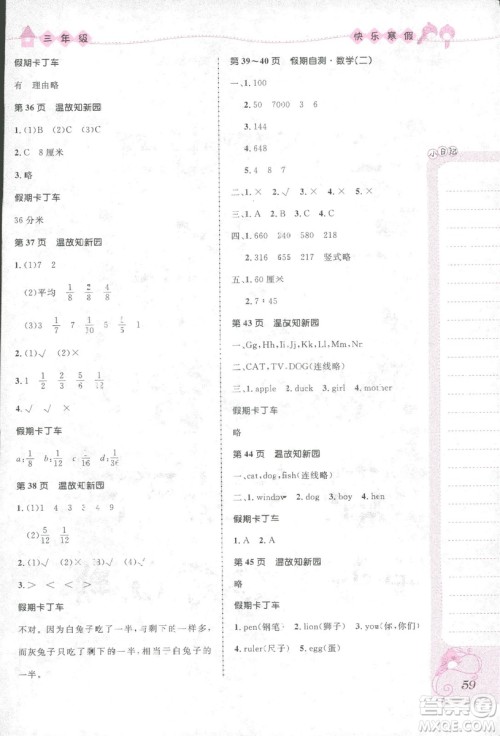 三年级
快乐寒假
假期卡丁车
有 理由略
第36页 温故知新园
1.(1)B (2)C (3)B
2.C 8厘米
3.略
假期卡丁车
36分米
第37页 温故知新园
1.(1)7 2
(2)平均 1/8 2/8 4/8
(3)3 1/7 2/7 4/7
2.(1)× (2)√ (3)√
3.1 1/2 1/9 1/12
假期卡丁车
a:1/8 b:1/12 c:1/12 d:1/8
第38页 温故知新园
1.(1)1 3 4 9
(2)5/12 4/12
2.(1)√ (2)√ (3)×
3.> < > <
假期卡丁车
不对。因为白兔子吃了一半,剩下的一半,
而灰兔子吃的是剩下一半,所以没有吃到
一半。
第39~40页 假期自测·数学(二)
一、1.100
2.50 7000 8 2 6
3.92
4.648
二、1.× 2.√ 3.× 4.×
三、1.A 2.B 3.B
四、1.660 290 480
2.316 655 217 竖式略
五、1.60厘米
2.7:45
第43页 温故知新园
一、Gg, Hh, Ii, Jj, Kk, Ll, Mm, Nn
二、CAT, TV, DOG(连线略)
三、1.apple 2.duck 3.girl 4.mother
假期卡丁车
略
第44页 温故知新园
一、cat, dog, fish(连线略)
二、1.window 2.dog 3.boy 4.pen
假期卡丁车
1.A 2.C
第45页 温故知新园
略
假期卡丁车
1.pen(钢笔) 2.lion(狮子) 3.you(你,你们)
4.ruler(尺子) 5.egg(蛋)
小日记
59